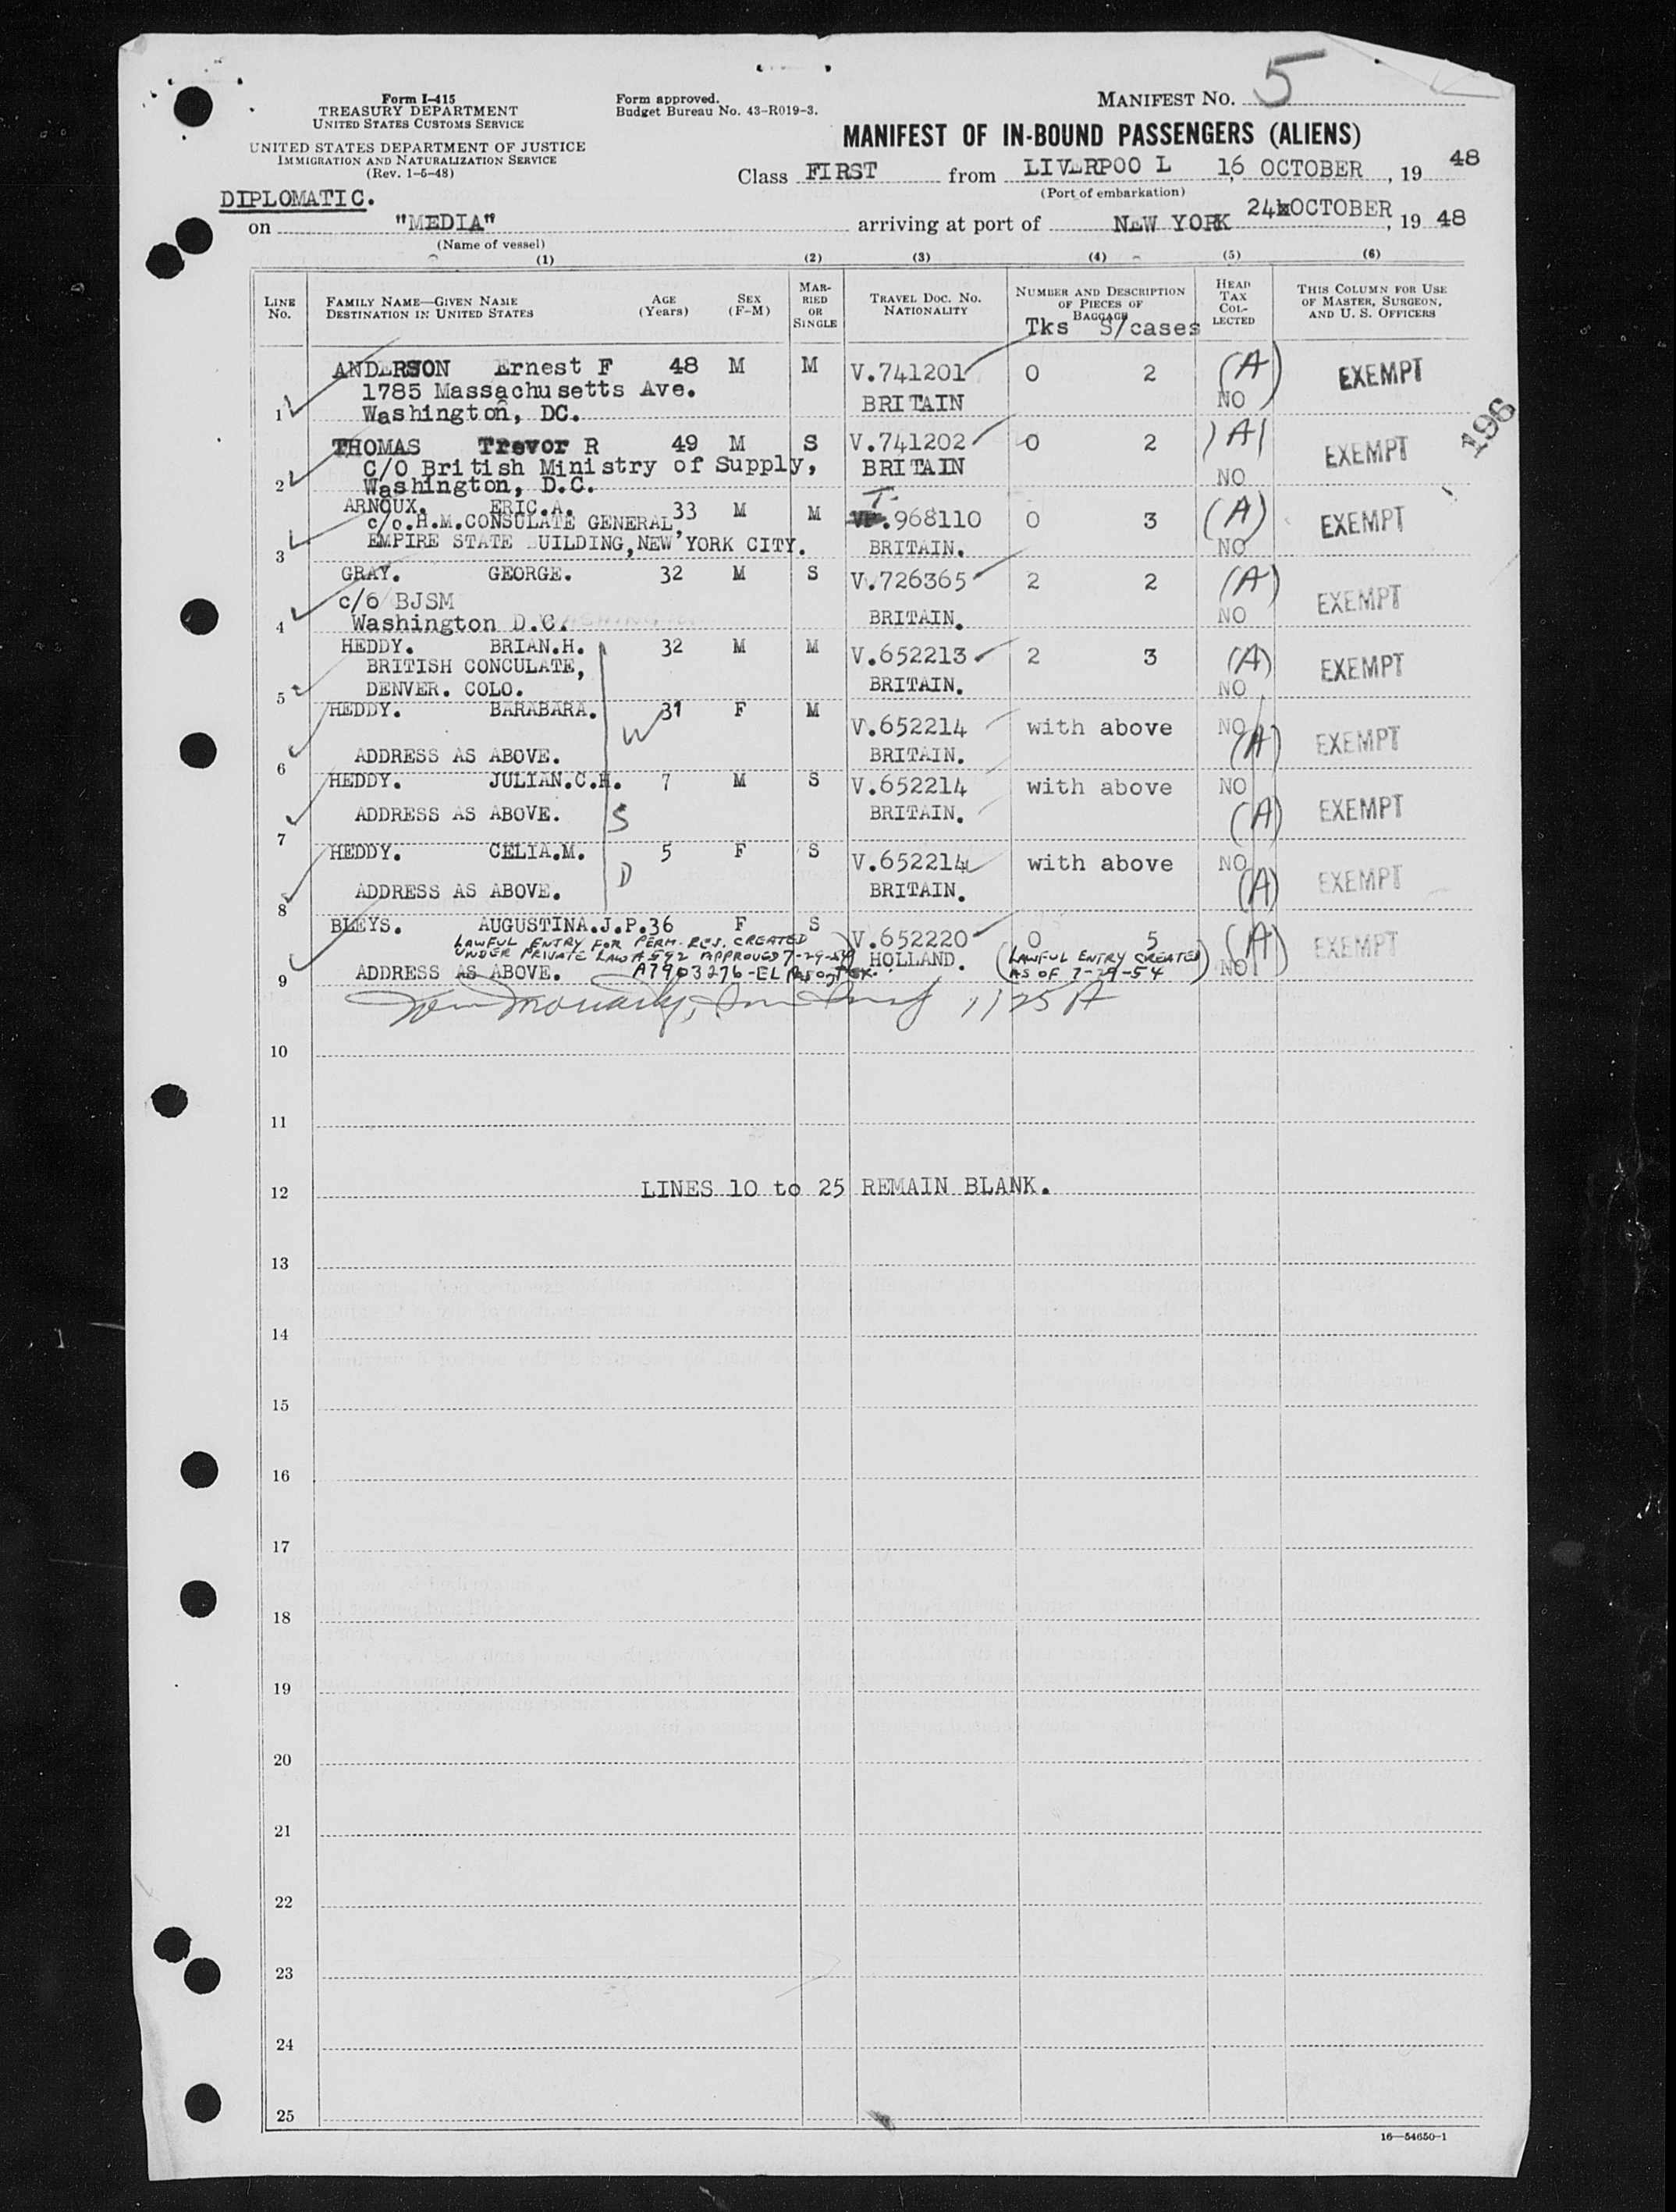 Form I-415
TREASURY DEPARTMENT
UNITED STATES CUSTOMS SERVICE
UNITED STATES DEPARTMENT OF JUSTICE
IMMIGRATION AND NATURALIZATION SERVICE
(Rev. 1-5-48)
Form approved.
Budget Bureau No. 43-R019-3.
MANIFEST NO. 5
MANIFEST OF IN-BOUND PASSENGERS (ALIENS)
Class FIRST from LIVERPOO L 16 OCTOBER, 19 48
(Port of embarkation)
DIPLOMATIC.
on "MEDIA" arriving at port of NEW YORK 24 OCTOBER, 19 48
(Name of vessel)
(1) (2) (3) (4) (5) (6)
LINE No. FAMILY NAME—GIVEN NAME DESTINATION IN UNITED STATES AGE (Years) SEX (F-M) MARRIED OR SINGLE TRAVEL DOC. NO. NATIONALITY NUMBER AND DESCRIPTION OF PIECES OF BAGGAGE HEAD TAX COLLECTED THIS COLUMN FOR USE OF MASTER, SURGEON, AND U. S. OFFICERS
Tks S/cases
ANDERSON Ernest F 48 M M V.741201 0 2 (A) EXEMPT
1785 Massachusetts Ave. BRITAIN NO
1 Washington, DC.
196
THOMAS Trevor R 49 M S V.741202 0 2 (A) EXEMPT
C/O British Ministry of Supply, BRITAIN NO
2 Washington, D.C.
ARNOUX. ERIC.A. 33 M M T.968110 0 3 (A) EXEMPT
c/o.H.M.CONSULATE GENERAL
3 EMPIRE STATE BUILDING,NEW YORK CITY. BRITAIN. NO
GRAY. GEORGE. 32 M S V.726365 2 2 (A) EXEMPT
c/o BJSM
4 Washington D.C. BRITAIN. NO
HEDDY. BRIAN.H. 32 M M V.652213 2 3 (A) EXEMPT
BRITISH CONCULATE,
5 DENVER. COLO. BRITAIN. NO
HEDDY. BARABARA. W 31 F M V.652214 with above NO (A) EXEMPT
6 ADDRESS AS ABOVE. BRITAIN.
HEDDY. JULIAN.C.H. 7 M S V.652214 with above NO
7 ADDRESS AS ABOVE. S BRITAIN. (A) EXEMPT
HEDDY. CELIA.M. 5 F S V.652214 with above NO
8 ADDRESS AS ABOVE. D BRITAIN. (A) EXEMPT
BLEYS. AUGUSTINA.J.P. 36 F S V.652220 0 5 (A) EXEMPT
LAWFUL ENTRY FOR PERM. RES. CREATED
UNDER PRIVATE LAW A592 APPROVED 7-29-54 HOLLAND. (LAWFUL ENTRY CREATED AS OF 7-29-54) NO
9 ADDRESS AS ABOVE. A7903276-EL Paso, Tex.
10
11
12 LINES 10 to 25 REMAIN BLANK.
13
14
15
16
17
18
19
20
21
22
23
24
25
16—54650-1